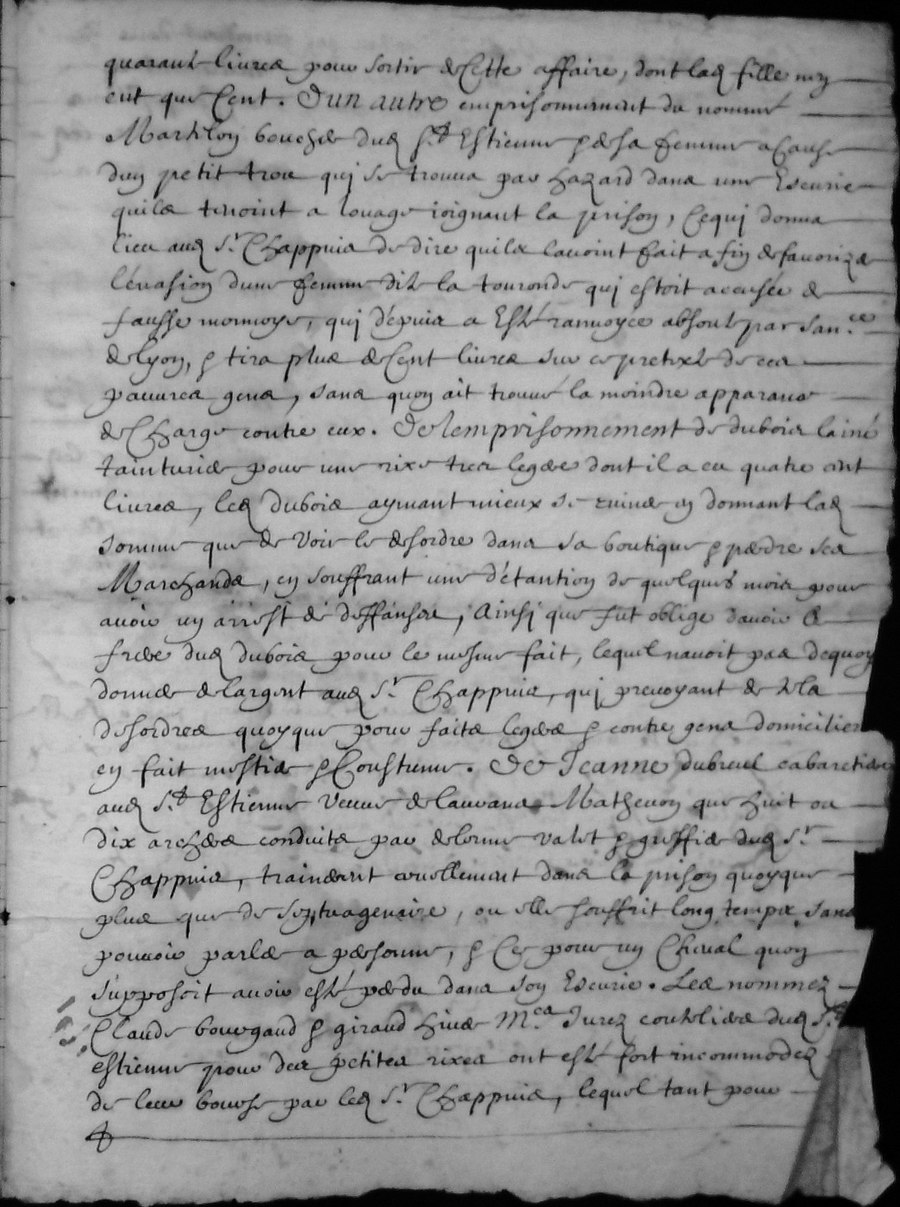 quarante livres pour sortir de Cette affaire, dont lad fille ny
eut que Cent. D'un autre emprisonnement du nommé
Martilon boucher dud St Estienne & de sa femme a Cause
dun petit trou qui se trouva par hazard dans une Escurie
quils tenoint a louage ioignant la prison, Ce qui donna
lieu aud Sr Chappuis de dire quils lavoint fait afin de favorizer
lévasion dune femme dite la touronde qui estoit accusée de
fausse monnoye, qui dépuis a Esté ranvoyée absoute par Sance
de Lyon, & tira plus de Cent livres sur ce pretexte de ces
pauvres gens, sans quon ait trouvé la moindre apparance
de Charge contre eux. De lemprisonnement de dubois lainé
tainturier pour une rixe tres legere dont il a eu quatre cent
livres, led dubois aymant mieux se ruiner en donnant lad
somme que de voir le desordre dans sa boutique & perdre ses
Marchands, en souffrant une détantion de quelques mois pour
avoir un arrest de deffanses, Ainsi que fut oblige davoir le
frere dud dubois pour le mesme fait, lequel navoit pas dequoy
donner de largent aud Sr Chappuis, qui prevoyant de tels
desordres quoyque pour faits legers & contre gens domicilies
en fait mestier & Coustume. De Jeanne dubreul cabaretiere
aud St Estienne veuve de Mathevon que huit ou
dix archers conduits par delorme valet & greffier dud Sr
Chappuis, trainerent cruellement dans la prison quoyque
plus que de septuagenaire, ou elle souffrit long temps sans
pouvoir parler a personne, & Ce pour un Cheval quon
supposoit avoir esté perdu dans son Escurie. Les nommez
Claude bourgaud & giraud hiver Mes Jurez couteliers dud St
estienne pour des petites rixes ont esté fort incommodez
de leur bourse par led Sr Chappuis, lequel tant pour